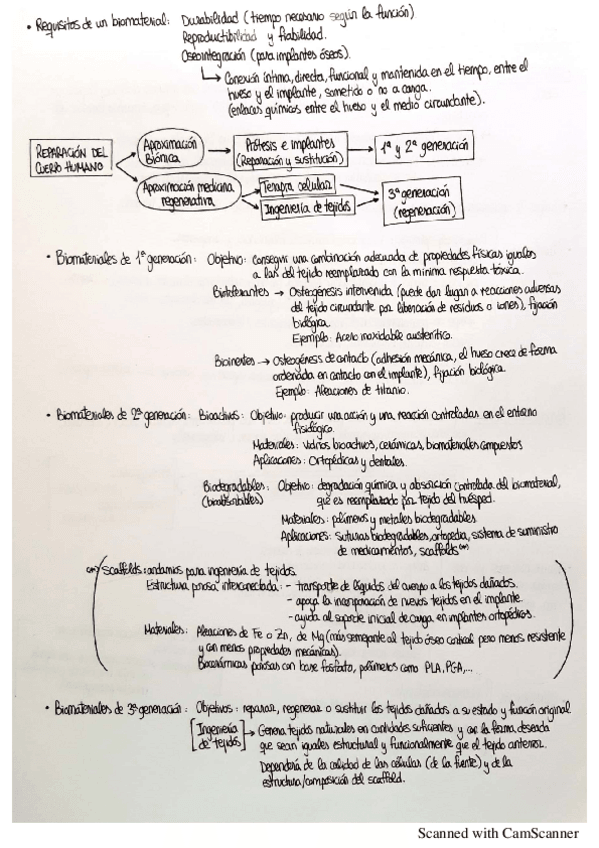 • Requisitos de un biomaterial: Durabilidad (tiempo necesario según la función)
Reproductibilidad y fiabilidad.
Oseointegración (para implantes óseos).
↳ Conexión íntima, directa, funcional y mantenida en el tiempo, entre el
hueso y el implante, sometido o no a carga.
(enlaces químicos entre el hueso y el medio circundante).
REPARACIÓN DEL
CUERPO HUMANO
Aproximación
Biónica
Prótesis e implantes
(Reparación y sustitución)
1ª y 2ª generación
Aproximación medicina
regenerativa
Terapia celular
Ingeniería de tejidos
3ª generación
(regeneración)
• Biomateriales de 1ª generación: Objetivo: conseguir una combinación adecuada de propiedades físicas iguales
a las del tejido reemplazado con la mínima respuesta tóxica.
Biotolerantes → Osteogénesis intervenida (puede dar lugar a reacciones adversas
del tejido circundante por liberación de residuos o iones), fijación
biológica.
Ejemplo: Acero inoxidable austenítico.
Bioinertes → Osteogénesis de contacto (adhesión mecánica, el hueso crece de forma
ordenada en contacto con el implante), fijación biológica.
Ejemplo: Aleaciones de titanio.
• Biomateriales de 2ª generación: Bioactivos: Objetivo: producir una acción y una reacción controladas en el entorno
fisiológico.
Materiales: vidrios bioactivos, cerámicas, biomateriales compuestos
Aplicaciones: Ortopédicas y dentales.
Biodegradables: Objetivo: degradación química y absorción controlada del biomaterial,
(bioabsorbibles) que es reemplazado por tejido del huésped.
Materiales: polímeros y metales biodegradables
Aplicaciones: suturas biodegradables, ortopedia, sistema de suministro
de medicamentos, scaffolds (*)
(*) Scaffolds: andamios para ingeniería de tejidos.
Estructura porosa interconectada: - transporte de líquidos del cuerpo a los tejidos dañados.
- apoya la incorporación de nuevos tejidos en el implante.
- ayuda al soporte inicial de carga en implantes ortopédicos.
Materiales: Aleaciones de Fe o Zn, de Mg (más semejante al tejido óseo cortical pero menos resistente
y con menos propiedades mecánicas).
Biocerámicas porosas con base fosfato, polímeros como PLA, PGA,...
• Biomateriales de 3ª generación: Objetivos: reparar, regenerar o sustituir los tejidos dañados a su estado y función original
[Ingeniería
de tejidos] → Genera tejidos naturales en cantidades suficientes y con la forma deseada
que sean iguales estructural y funcionalmente que el tejido anterior.
Dependería de la calidad de las células (de la fuente) y de la
estructura/composición del scaffold.
Scanned with CamScanner